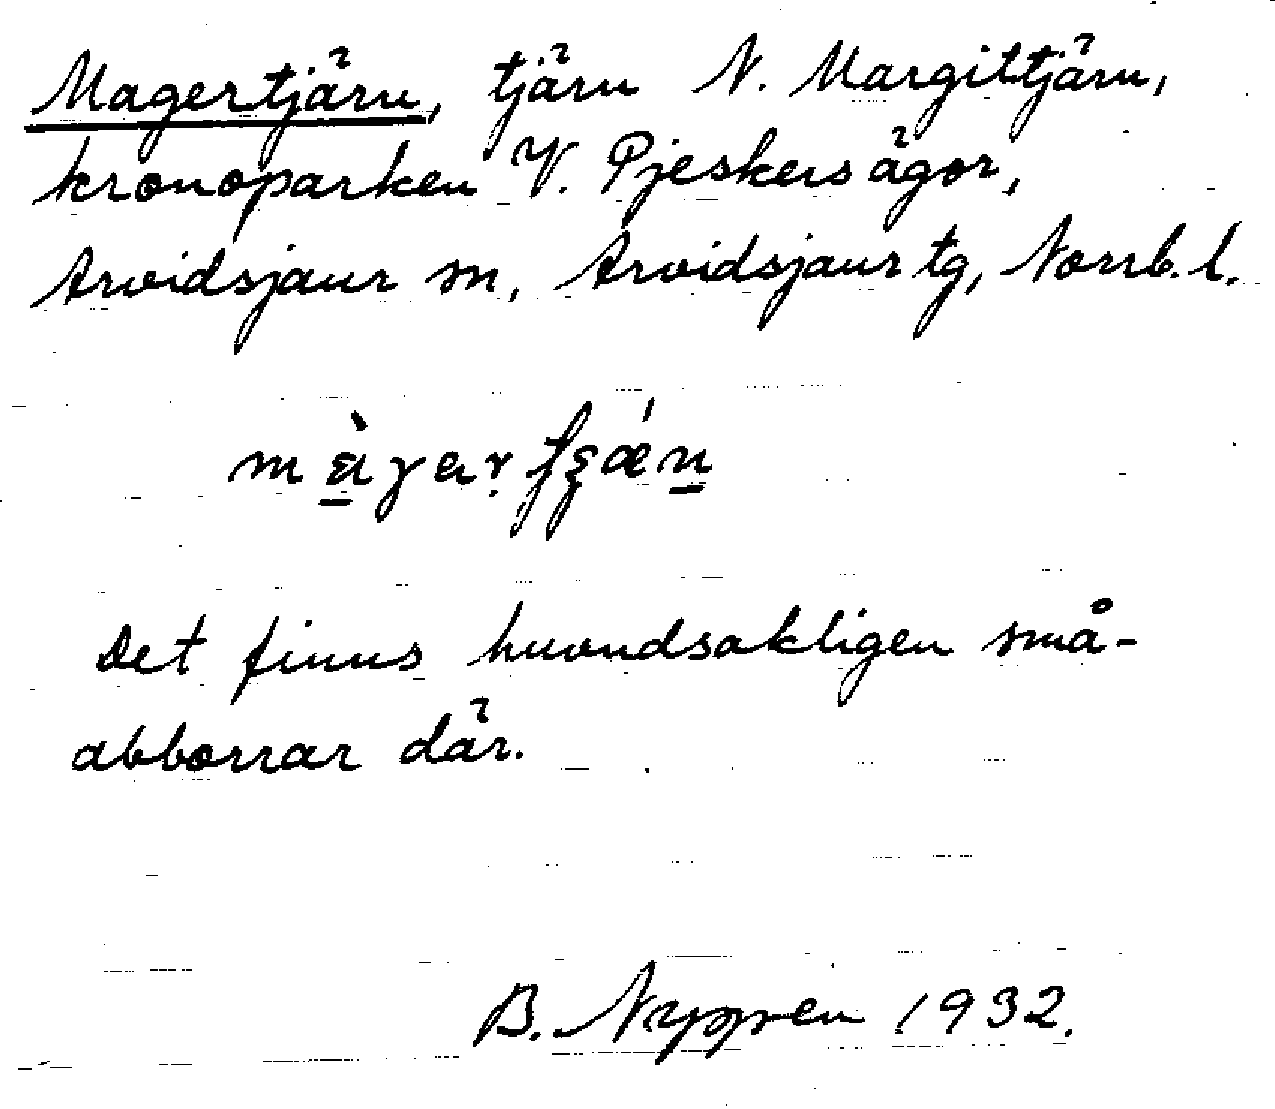 Magertjärn, tjärn N. Margittjärn,
kronoparken V. Pjeskers ägor,
Arvidsjaur sn, Arvidsjaurs tg, Norrb. l.
Det finns huvudsakligen små-
abborrar där.
B. 1932.